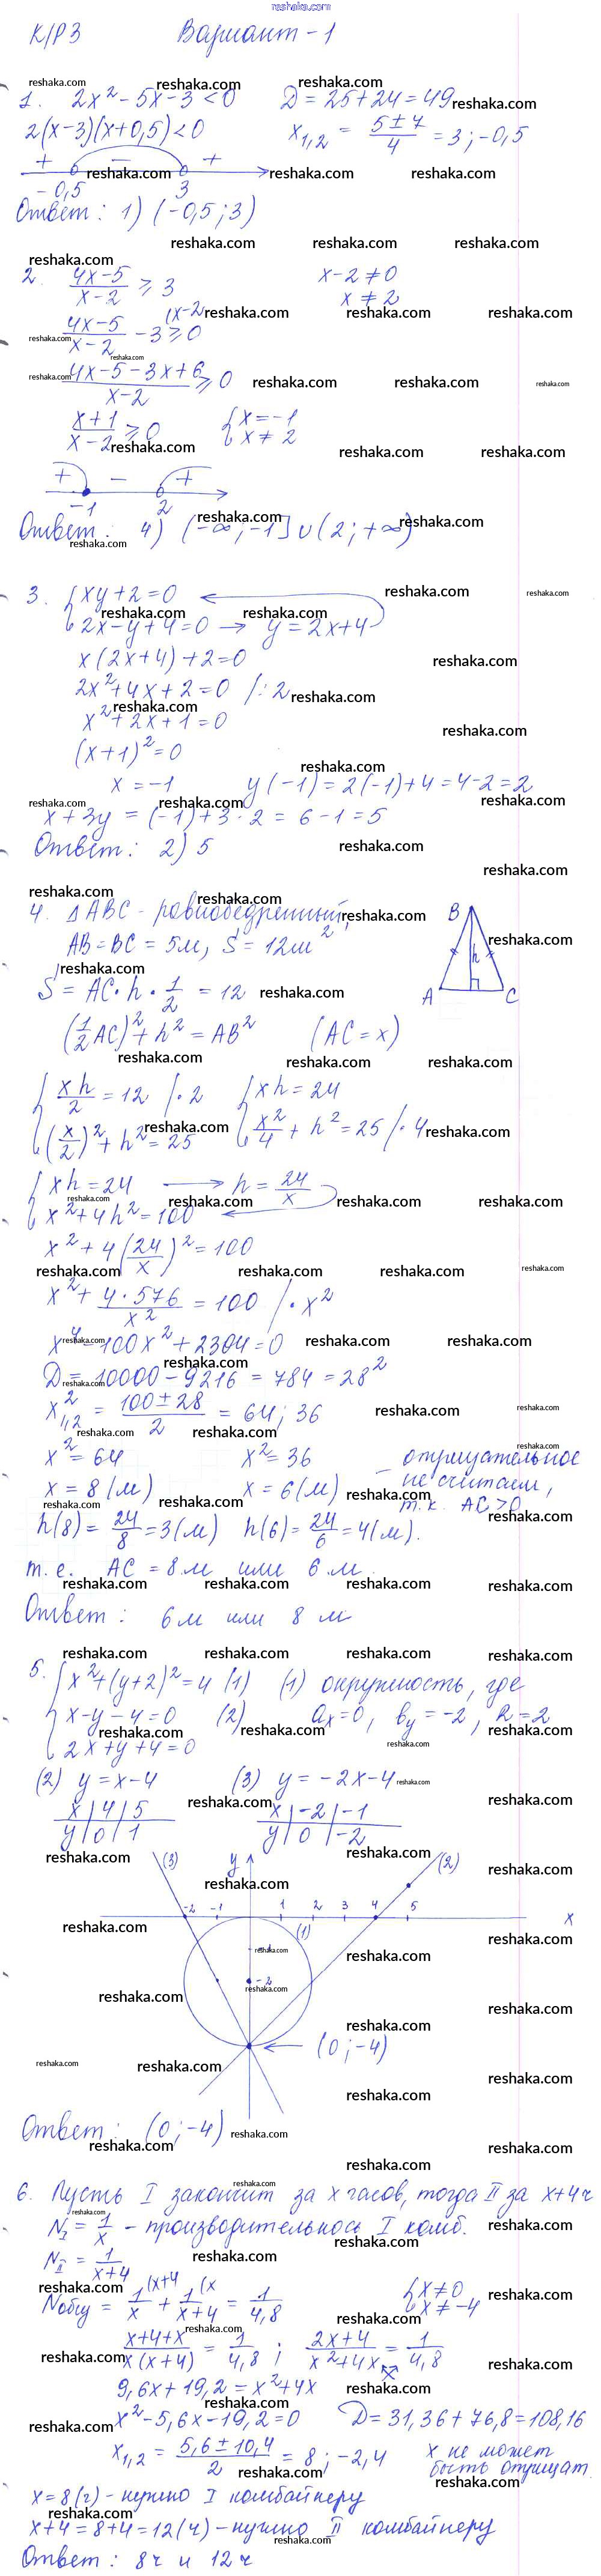 reshaka.com
К/Р 3 Вариант - 1
1. 2x² - 5x - 3 < 0 D = 25 + 24 = 49
2(x-3)(x+0,5) < 0 x₁,₂ = (5 ± 7)/4 = 3 ; -0,5
+ - +
-0,5 3
Ответ: 1) (-0,5 ; 3)
2. (4x-5)/(x-2) ≥ 3 x-2 ≠ 0
x ≠ 2
(4x-5)/(x-2) - 3 ≥ 0 (x-2
(4x-5-3x+6)/(x-2) ≥ 0
(x+1)/(x-2) ≥ 0 { x = -1
x ≠ 2
+ - +
-1 2
Ответ: 4) (-∞ ; -1] ∪ (2 ; +∞)
3. { xy + 2 = 0
2x - y + 4 = 0 → y = 2x+4
x(2x+4) + 2 = 0
2x² + 4x + 2 = 0 /:2
x² + 2x + 1 = 0
(x+1)² = 0
x = -1 y(-1) = 2(-1)+4 = 4-2 = 2
x + 3y = (-1) + 3·2 = 6 - 1 = 5
Ответ: 2) 5
4. ΔABC - равнобедренный,
AB = BC = 5м, S = 12м²
B
h
A C
S = AC · h · 1/2 = 12
(1/2 AC)² + h² = AB² (AC = x)
{ xh/2 = 12 /·2 { xh = 24
(x/2)² + h² = 25 x²/4 + h² = 25 /·4
{ xh = 24 → h = 24/x
x² + 4h² = 100
x² + 4(24/x)² = 100
x² + 4·576/x² = 100 /·x²
x⁴ - 100x² + 2304 = 0
D = 10000 - 9216 = 784 = 28²
x²₁,₂ = (100 ± 28)/2 = 64 ; 36
x² = 64 x² = 36 - отрицательное
x = 8 (м) x = 6 (м) не считаем,
т.к. AC > 0
h(8) = 24/8 = 3 (м) h(6) = 24/6 = 4 (м).
т.е. AC = 8 м или 6 м.
Ответ: 6 м или 8 м
5. { x² + (y+2)² = 4 (1) (1) окружность, где
x - y - 4 = 0 (2) aₓ = 0, bᵧ = -2, R = 2
2x + y + 4 = 0
(2) y = x - 4 (3) y = -2x - 4
x | 4 | 5 x | -2 | -1
y | 0 | 1 y | 0 | -2
(3) y (2)
-2 -1 1 2 3 4 5 x
(1)
-1
-2
(0 ; -4)
Ответ: (0 ; -4)
6. Пусть I закончит за x часов, тогда II за x+4 ч
N_I = 1/x - производительнось I комб.
N_II = 1/(x+4)
Nобщ = 1/x (x+4 + 1/(x+4) (x = 1/4,8 { x ≠ 0
x ≠ -4
(x+4+x)/(x(x+4)) = 1/4,8 ; (2x+4)/(x²+4x) = 1/4,8
9,6x + 19,2 = x² + 4x
x² - 5,6x - 19,2 = 0 D = 31,36 + 76,8 = 108,16
x₁,₂ = (5,6 ± 10,4)/2 = 8 ; -2,4 x не может
быть отрицат.
x = 8 (ч) - нужно I комбайнеру
x+4 = 8+4 = 12 (ч) - нужно II комбайнеру
Ответ: 8 ч и 12 ч